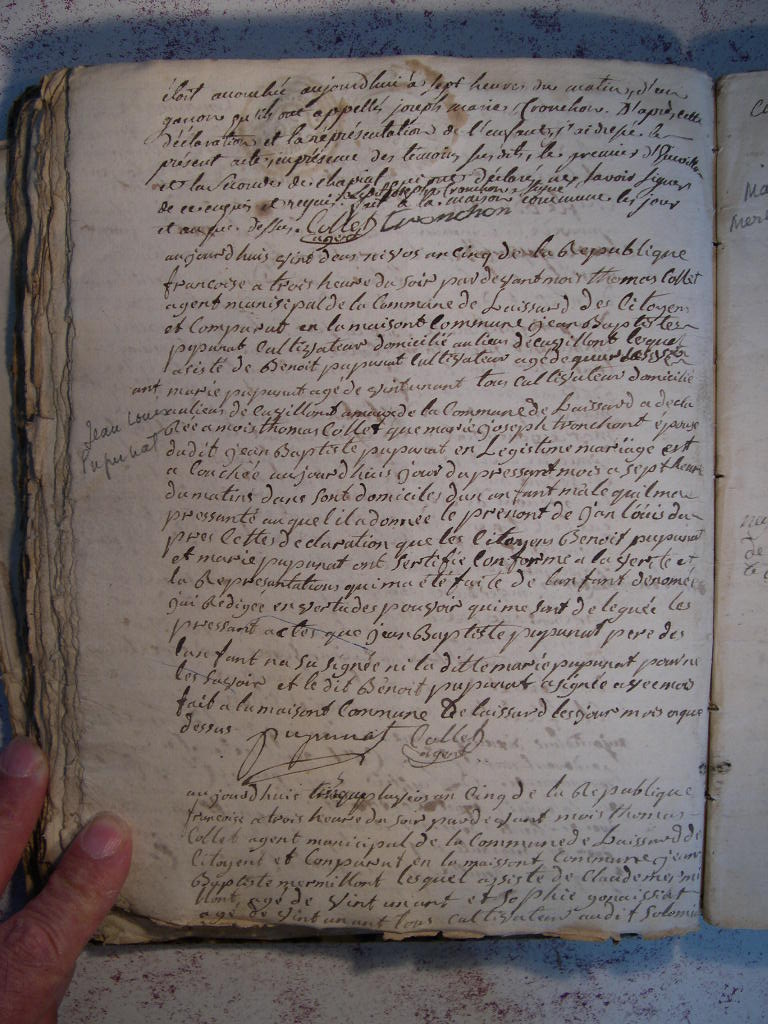 étoit accouchée aujourdhui à sept heures du matin, d'un
garçon qu'ils ont appellé joseph marie Tronchon. D'après cette
déclaration et la représentation de l'enfant, j'ai dressé le
présent acte, en présence des témoins susdits, le premier
et la seconde de chapial, qui ont déclaré ne savoir signer
de ce enquis et requis. joseph Tronchon a signé
fait à la maison commune les jour
et an que dessus. Collet Tronchon
agent
aujourdhuis vint deux nivos an cinq de la Republique
francoise a trois heure du soir par devant mois thomas Collet
agent manisipal de la Commune de Laissard des Citoyens
et Comparut en la maisont Commune jean Baptiste
pupunat Cultivateur domicilié au lieu de cuvillont lequel
asisté de Benoit pupunat Cultivateur agé de
marie pupunat agé de vint un ant tous cultivateur domicilié
ant
Jean Louis
Pupunat
au lieu de Cuvillont de la Commune de Laissard a decla
rée a mois thomas Collet que marie joseph tronchont épouse
dudit jean Baptiste pupunat en Legistime mariage est
a Couchée aujourdhuis jour du pressant mois a sept heure
du matins dans sont domiciles dun anfant mâle quil ma
pressanté auquel il a donnée le prenont de Jan Louis da
pres Cettes declaration que les Citoyens Benoit pupunat
et marie pupunat ont sertifié Conforme a la verite et
la Representations qui ma eté faite de lan fant denomée
jai Redigée en vertu des pouvoir qui me sont delequée les
pressant actes que jean Baptiste pupunat pere des
lan fant na su signée ni la ditte marie pupunat pour ne
les savoir et le dit Benoit pupunat a signée avec mois
fait a la maisont Commune De laissard les jour mois an que
dessus
pupunat Collet
agent
aujourdhuis pluviose an Cinq de la Republique
francoise a trois heure du soir par devant mois thomas
Collet agent municipal de la Commune de Laissard de
Citoyent et Comparut en la maisont Commune jean
Baptiste mermillont lesquel assisté de Claude mermi
llont, agé de vint un ant et Sophie
agé de vint un ant tous cultivateur audit